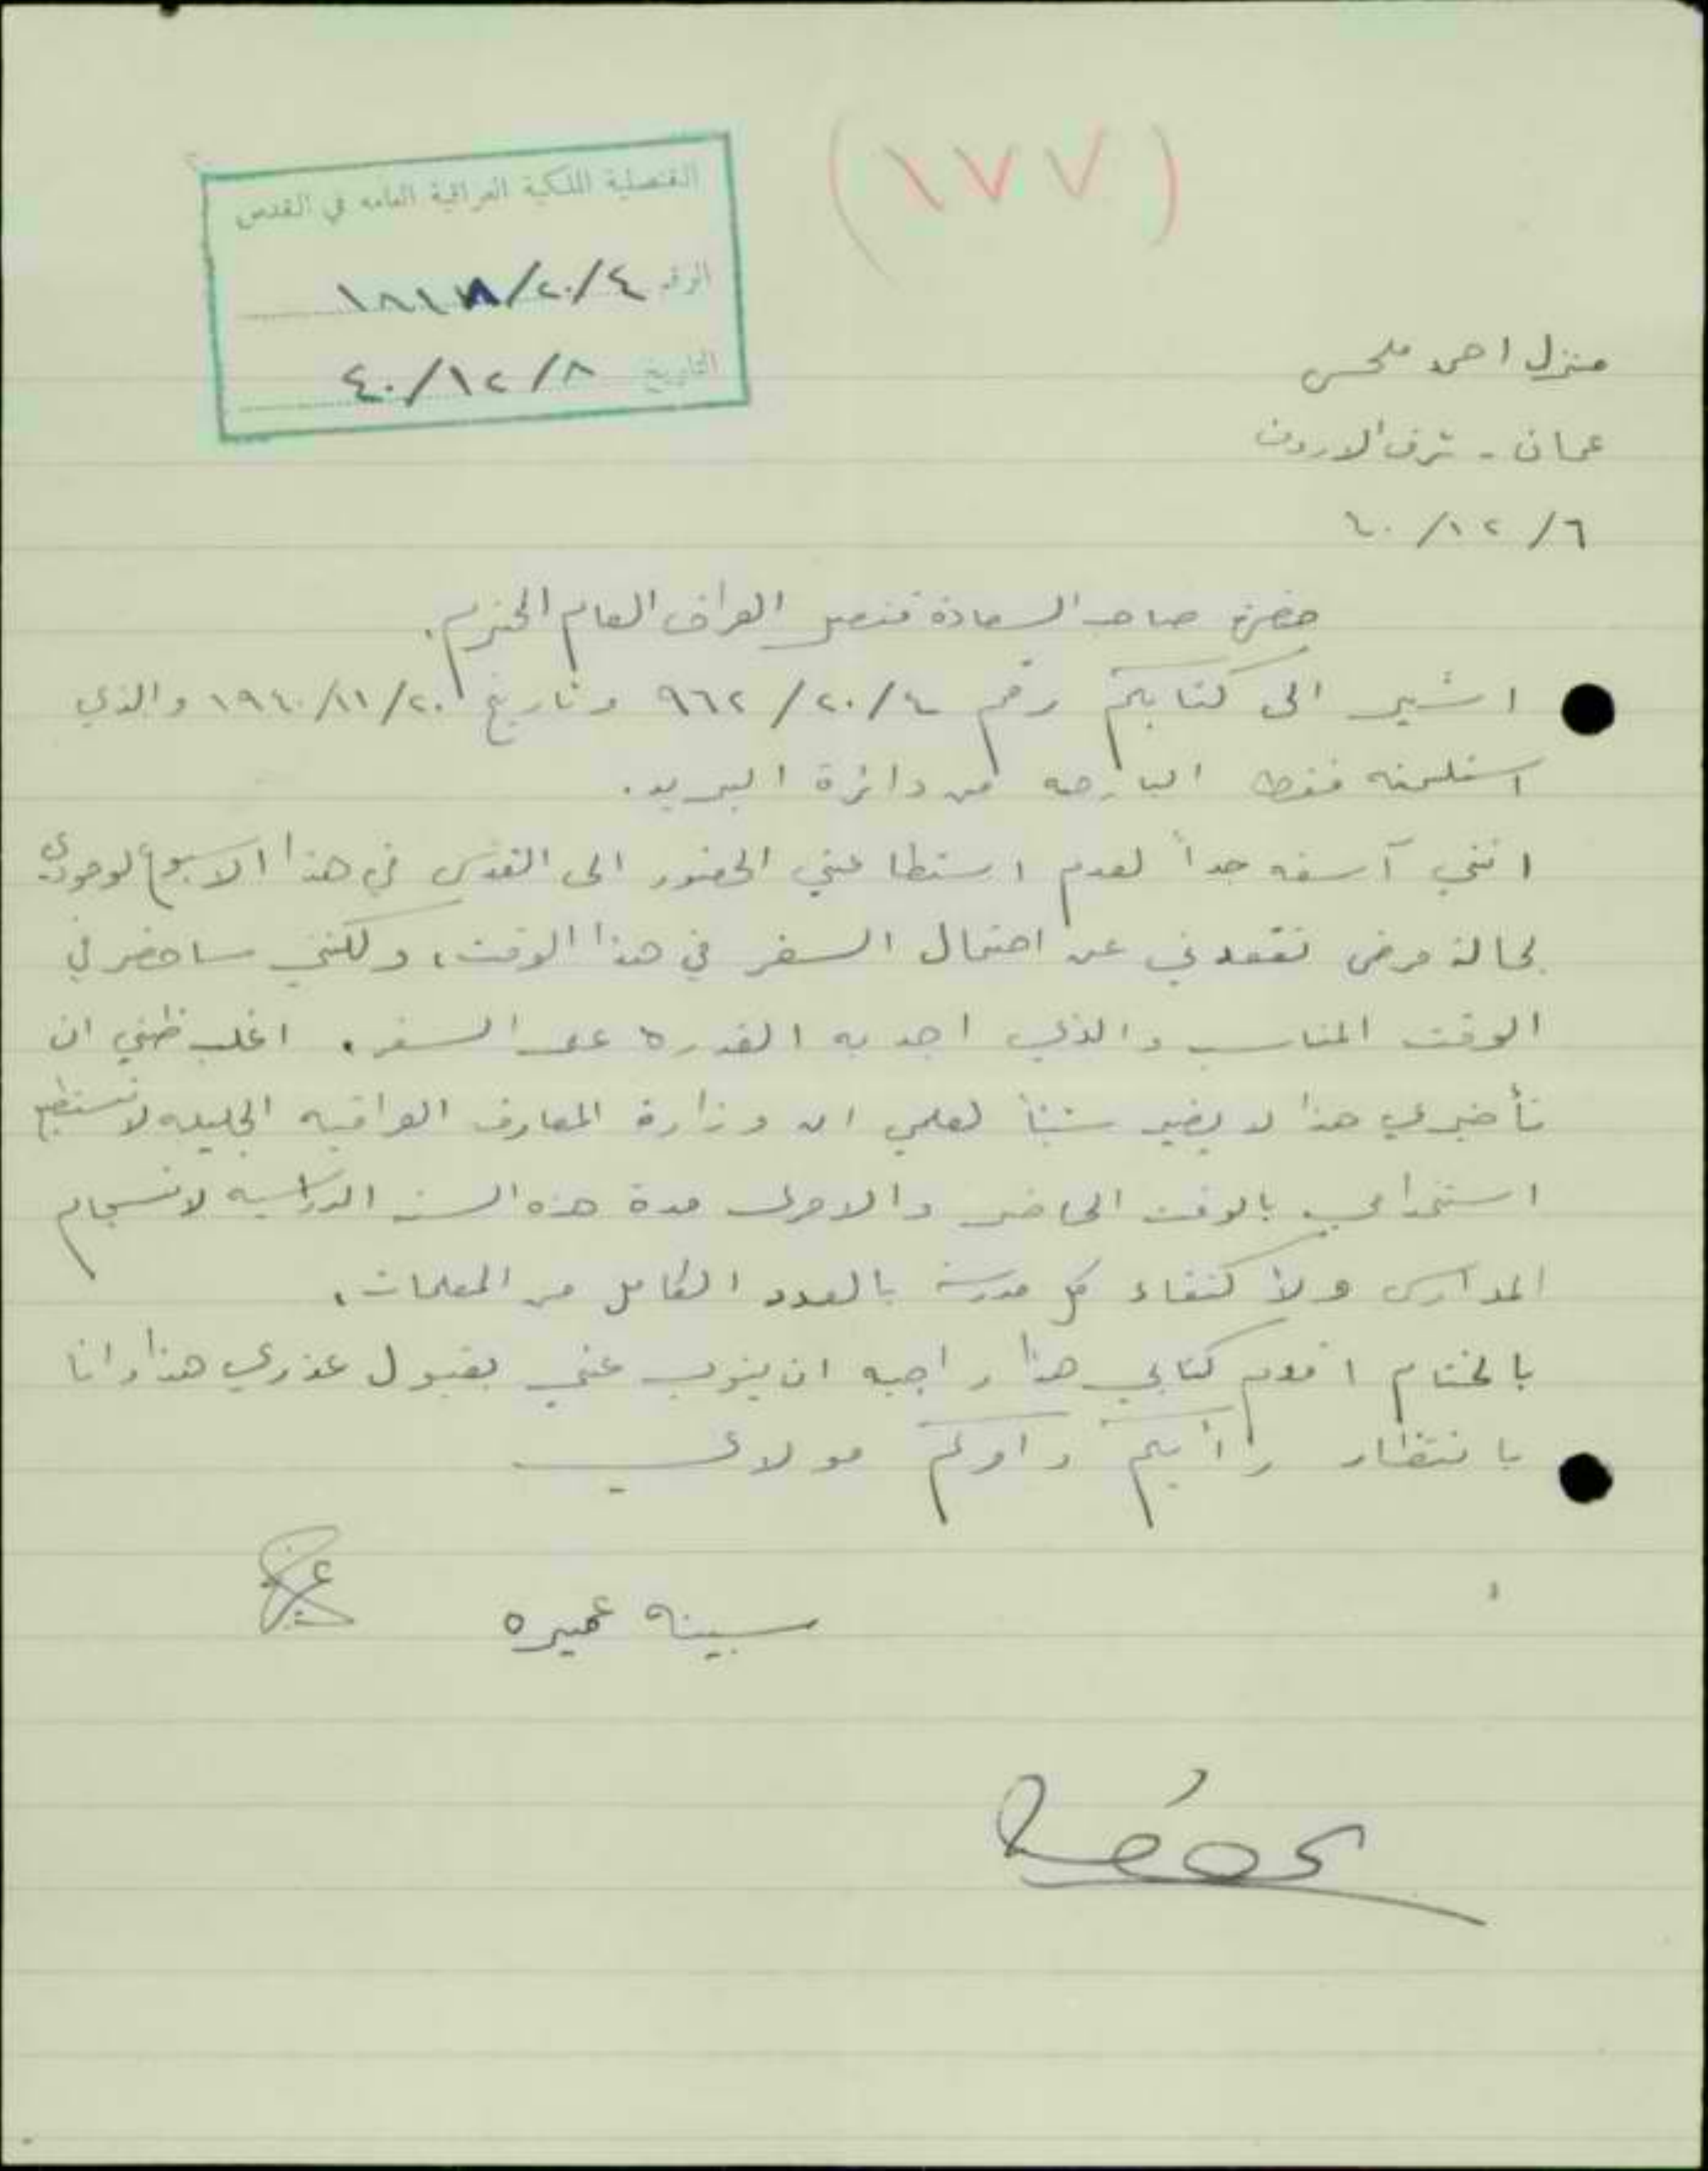 (١٧٧)
القنصلية الملكية العراقية العامه في القدس
الرقم ٤/٢٠/١٨١٨
التاريخ ٤٠/١٢/٨
منزل احمد ملحس
عمان - شرق الاردن
٤٠/١٢/٦
حضرة صاحب السعادة قنصل العراق العام المحترم.
اشير الى كتابكم رقم ٩٦٢/٢٠/٤ وتاريخ ١٩٤٠/١١/٢٠ والذي
استلمته فقط البارحه من دائرة البريد.
انني آسفه جداً لعدم استطاعتي الحضور الى القدس في هذا الاسبوع لوجودي
بحالة مرض تقعدني عن احتمال السفر في هذا الوقت، ولكنني ساحضر في
الوقت المناسب والذي اجد به القدره على السفر. اغلب ظني ان
تأخيري هذا لا يغير شيئاً لعلمي ان وزارة المعارف العراقيه الجليله لا تستطيع
استخدامي بالوقت الحاضر والاحرى مدة هذه السنة الدراسيه لانسجام
المدارس ولاكتفاء كل مدرسة بالعدد الكامل من المعلمات.
بالختام اقدم كتابي هذا راجيه ان ينوب عني بقبول عذري هذا وانا
بانتظار رأيكم وامركم مولاي
سبينه عميره